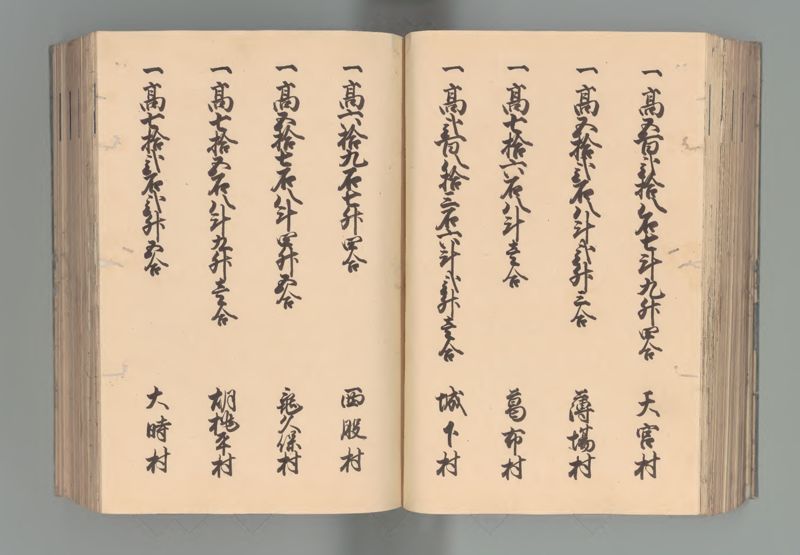 一高五百弐拾八石七斗九升四合 天宮村
一高五拾弐石八斗弐升三合 薄場村
一高七拾六石八斗壱合 葛布村
一高弐百八拾三石六斗弐升壱合 城下村
一高六拾九石七升四合 西股村
一高五拾七石八斗四升五合 亀久保村
一高七拾五石八斗九升壱合 胡桃平村
一高七拾弐石弐升五合 大時村